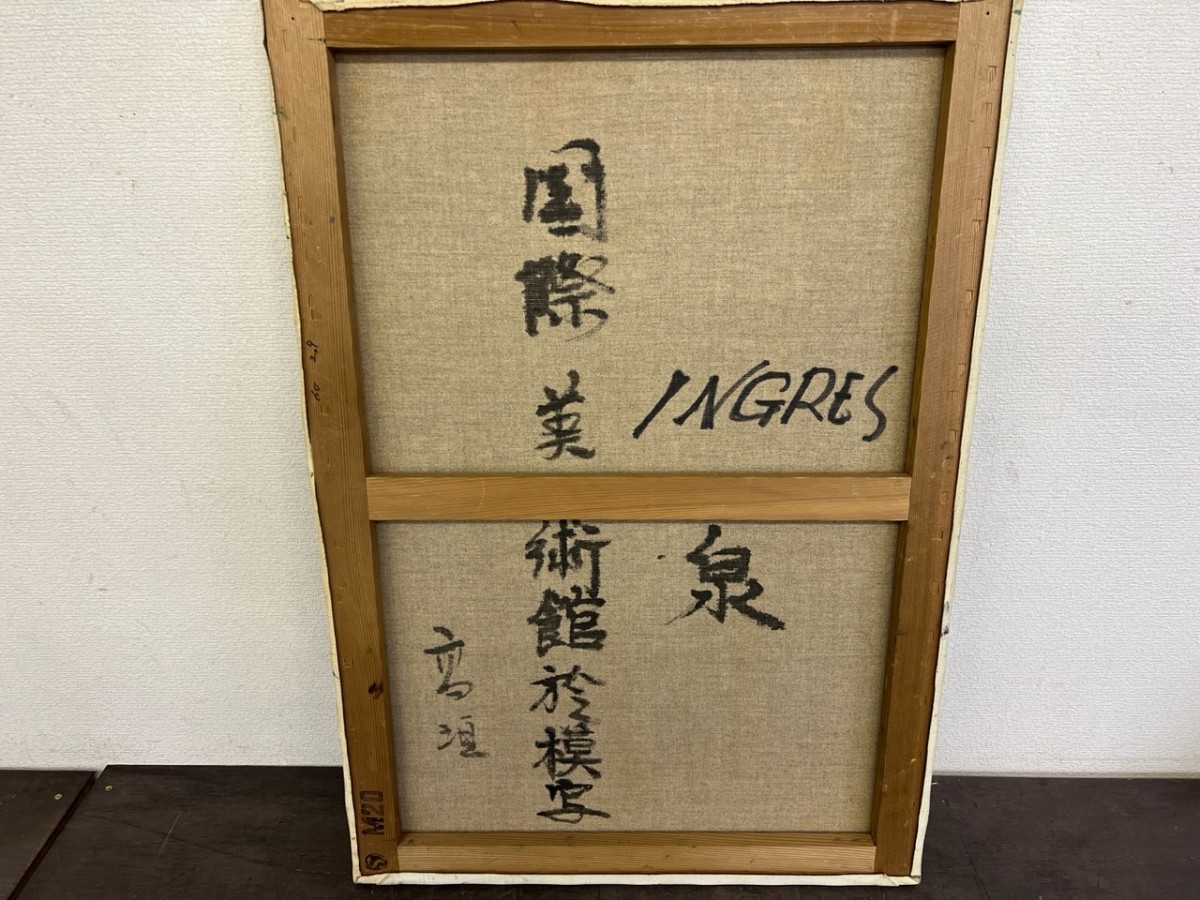 INGRES
泉
国際美術館於模写
高垣
M20